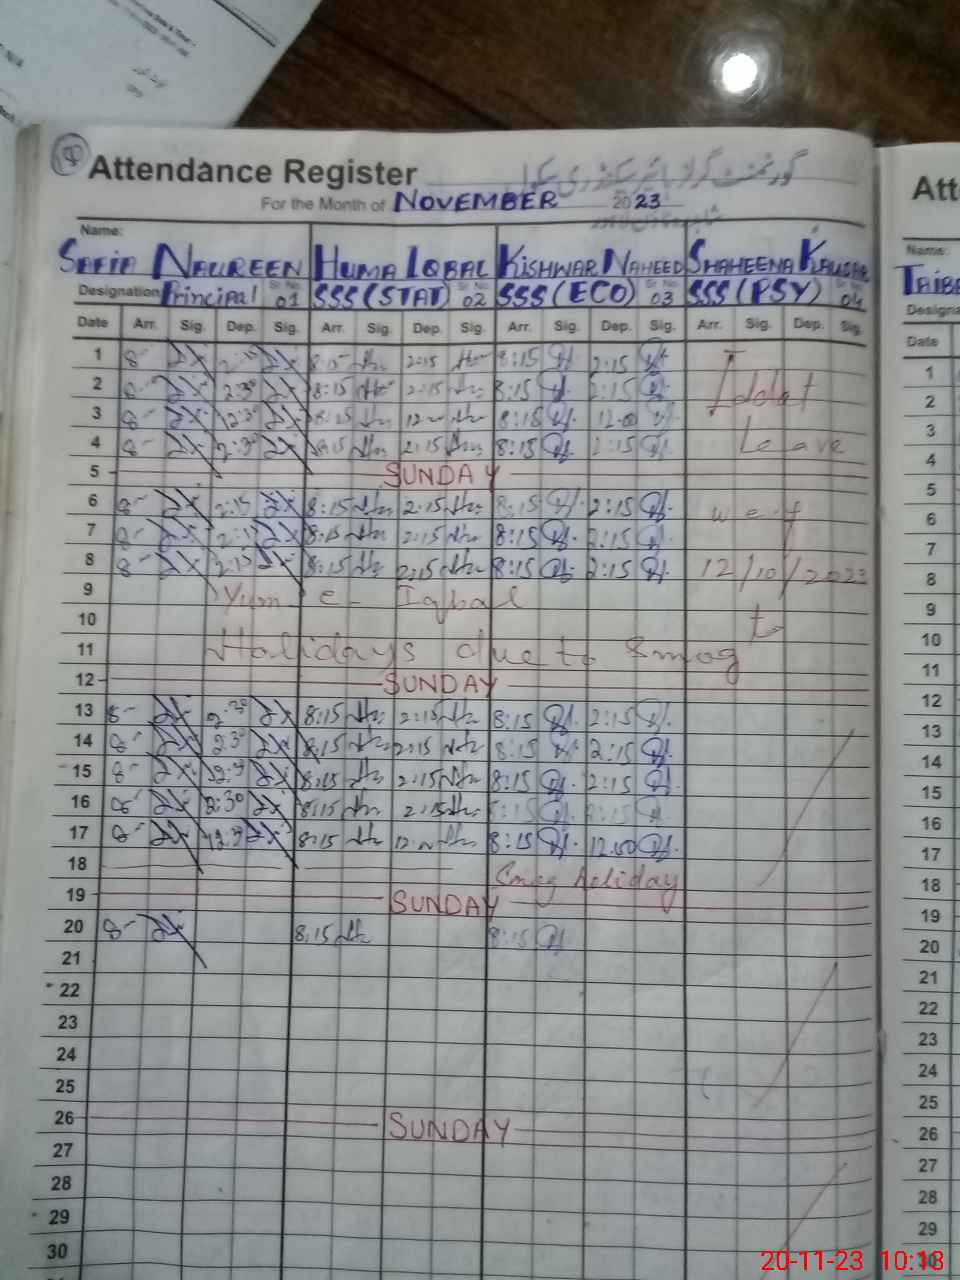 Attendance Register گورنمنٹ گرلز ہائیر سیکنڈری سکول
For the Month of NOVEMBER 2023
Name:
SAFIA NAUREEN HUMA IQBAL KISHWAR NAHEED SHAHEENA KAUSAR
Designation Principal Sr No. 01 SSS (STAT) Sr No. 02 SSS (ECO) Sr No. 03 SSS (PSY) Sr No. 04
Date Arr. Sig. Dep. Sig. Arr. Sig. Dep. Sig. Arr. Sig. Dep. Sig. Arr. Sig. Dep. Sig.
1 8- 2:15 8:15 2:15 8:15 2:15 I
2 8- 2:30 8:15 2:15 8:15 2:15 Iddat
3 8- 12:30 8:15 12:00 8:15 12:00
4 8- 2:30 8:15 2:15 8:15 2:15 Leave
5 SUNDAY
6 8- 2:15 8:15 2:15 8:15 2:15 w.e.f
7 8- 2:15 8:15 2:15 8:15 2:15
8 8- 2:15 8:15 2:15 8:15 2:15 12/10/2023
9 Yum e- Iqbal
10 to
11 Holidays due to Smog
12 SUNDAY
13 8- 2:30 8:15 2:15 8:15 2:15
14 8- 2:30 8:15 2:15 8:15 2:15
15 8- 2:30 8:15 2:15 8:15 2:15
16 8- 2:30 8:15 2:15 8:15 2:15
17 8- 12:30 8:15 12:00 8:15 12.00
18 Smog holiday
19 SUNDAY
20 8- 8:15 8:15
21
22
23
24
25
26 SUNDAY
27
28
29
30
Att
Name:
TAIBA
Designa
Date
1
2
3
4
5
6
7
8
9
10
11
12
13
14
15
16
17
18
19
20
21
22
23
24
25
26
27
28
29
30
20-11-23 10:13